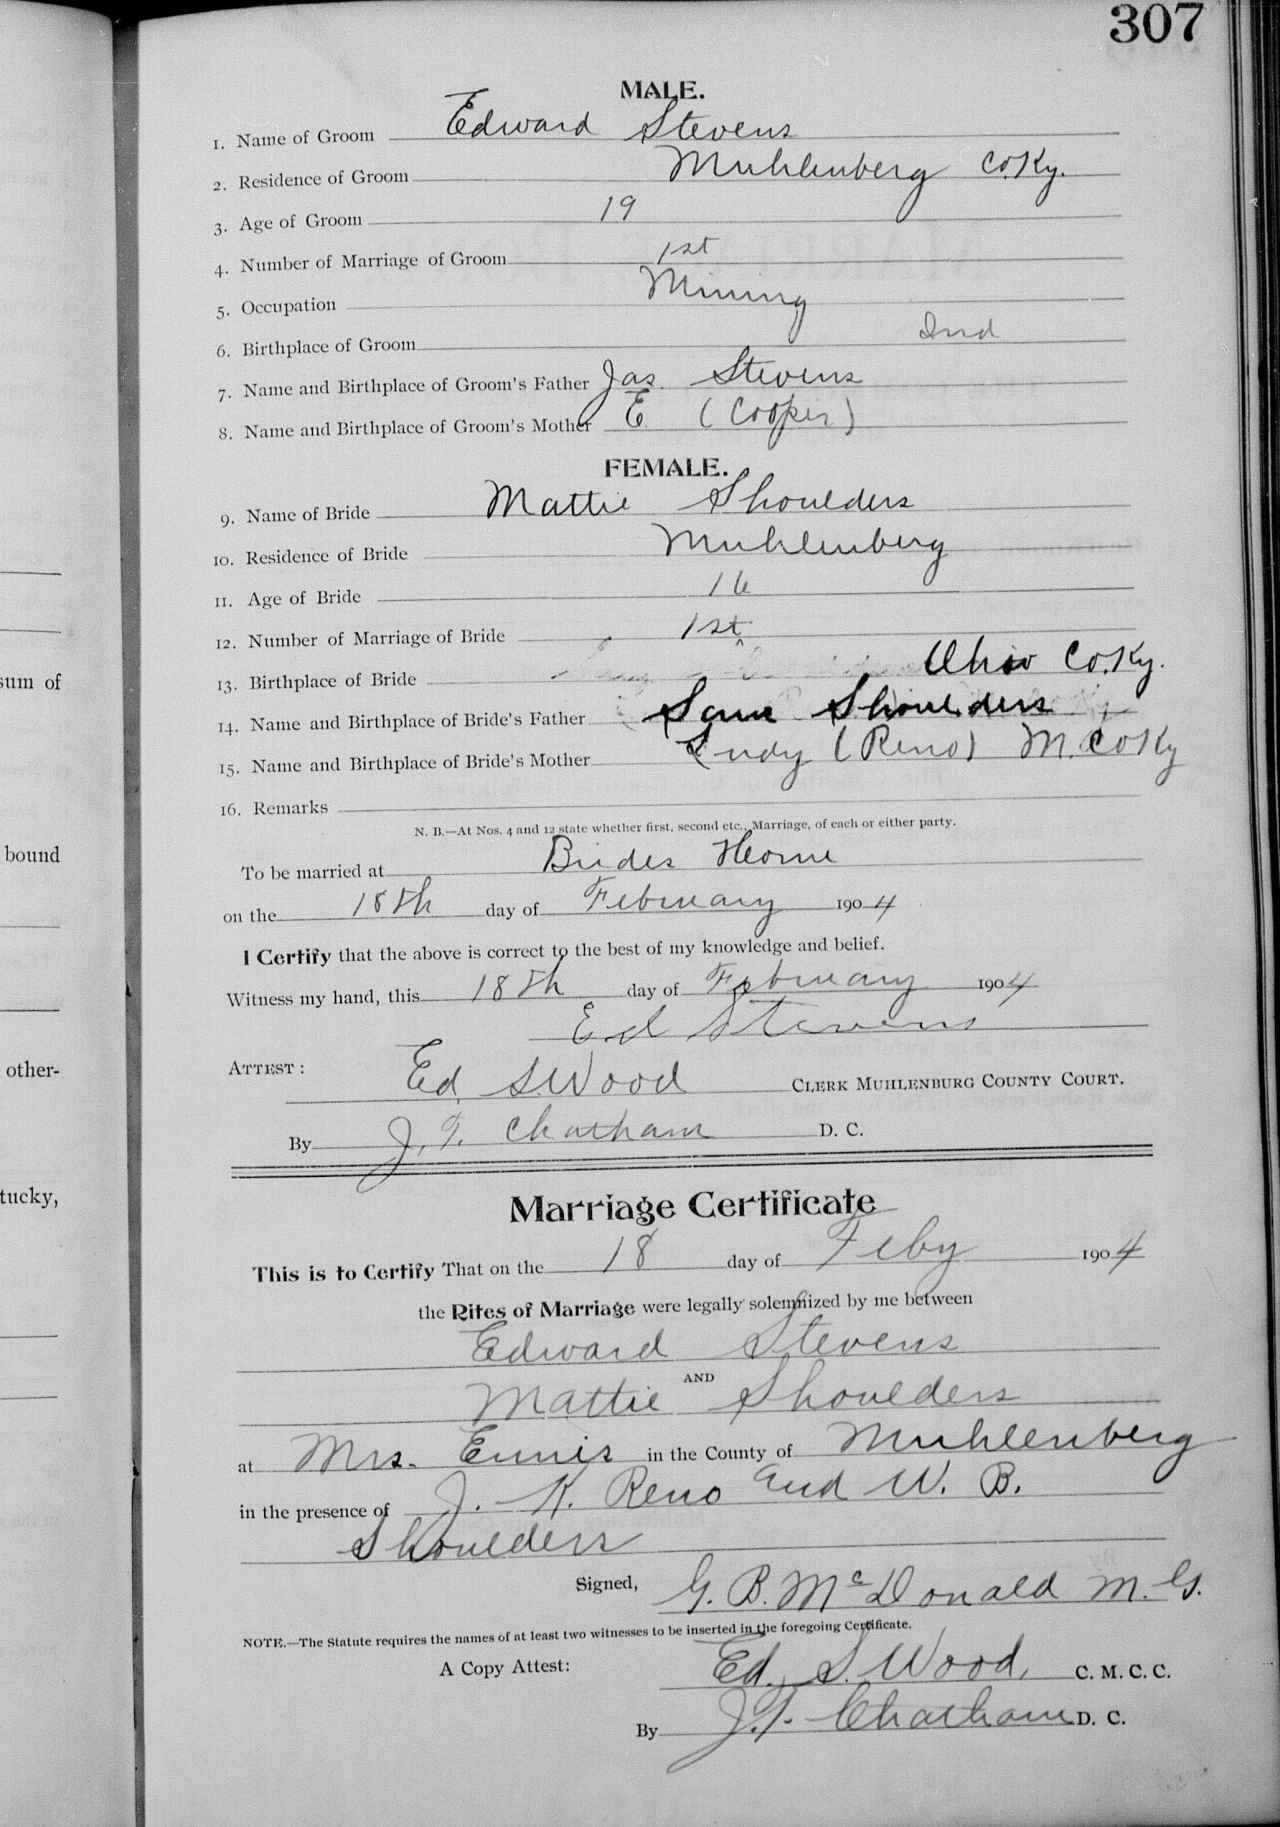 307
MALE.
1. Name of Groom Edward Stevens
2. Residence of Groom Muhlenberg Co. Ky.
3. Age of Groom 19
4. Number of Marriage of Groom 1st
5. Occupation Mining
6. Birthplace of Groom Ind
7. Name and Birthplace of Groom's Father Jas. Stevens
8. Name and Birthplace of Groom's Mother E. (Cooper)
FEMALE.
9. Name of Bride Mattie Shoulders
10. Residence of Bride Muhlenberg
11. Age of Bride 16
12. Number of Marriage of Bride 1st
13. Birthplace of Bride Ohio Co. Ky.
14. Name and Birthplace of Bride's Father Sam Shoulders
15. Name and Birthplace of Bride's Mother (Reno) M. Co Ky
16. Remarks
N. B.—At Nos. 4 and 12 state whether first, second etc., Marriage, of each or either party.
To be married at Brides Home
on the 18th day of February 1904
I Certify that the above is correct to the best of my knowledge and belief.
Witness my hand, this 18th day of February 1904
Ed Stevens
ATTEST: Ed. S. Wood CLERK MUHLENBURG COUNTY COURT.
By J. T. Chatham D. C.
Marriage Certificate
This is to Certify That on the 18 day of Feby 1904
the Rites of Marriage were legally solemnized by me between
Edward Stevens
AND
Mattie Shoulders
at Mrs. Ennis in the County of Muhlenberg
in the presence of J. K. Reno and W. B.
Shoulders
Signed, G. B. McDonald M. G.
NOTE.—The Statute requires the names of at least two witnesses to be inserted in the foregoing Certificate.
A Copy Attest: Ed. S. Wood, C. M. C. C.
By J. T. Chatham D. C.
sum of
bound
other-
tucky,